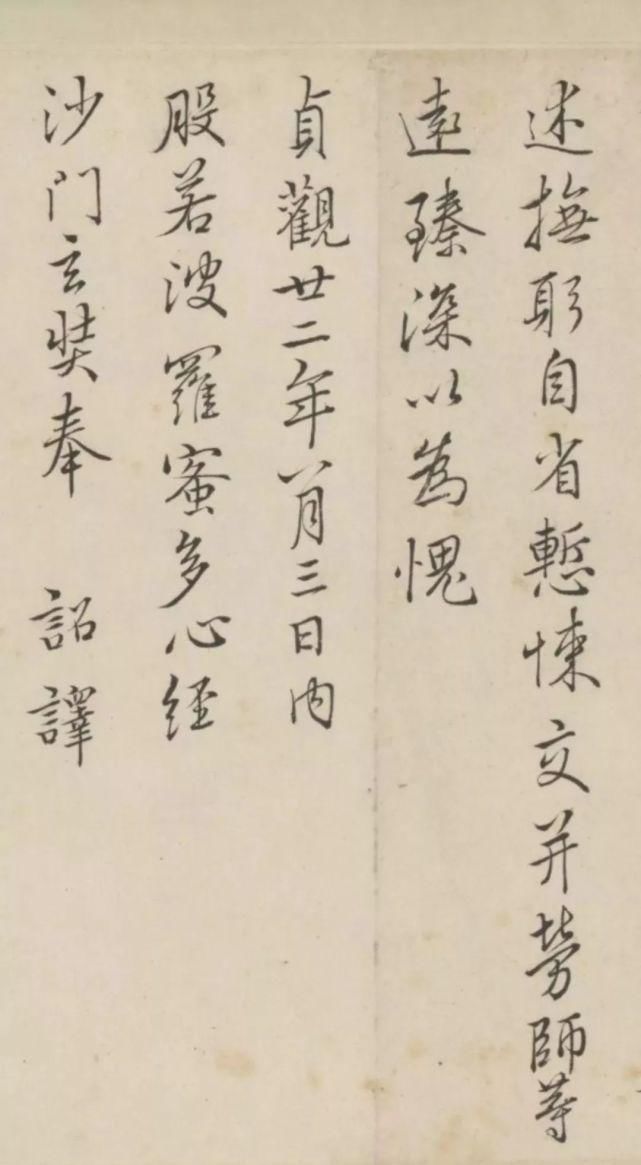 述撫躬自省慙悚交并勞師等
遠臻深以為愧
貞觀廿二年八月三日內
般若波羅蜜多心經
沙門玄奘奉 詔譯